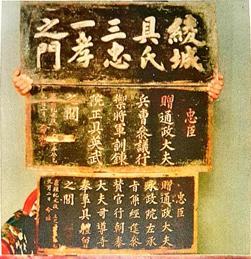 綾城
具氏
三忠
一孝
之門
忠臣
贈通政大夫
兵曹參議行
禦將軍訓鍊
院正具 武
之閭
忠臣
贈通政大夫
承政院左承
旨兼經筵參
贊官行朝奉
大夫司導寺
奉事具體
之閭